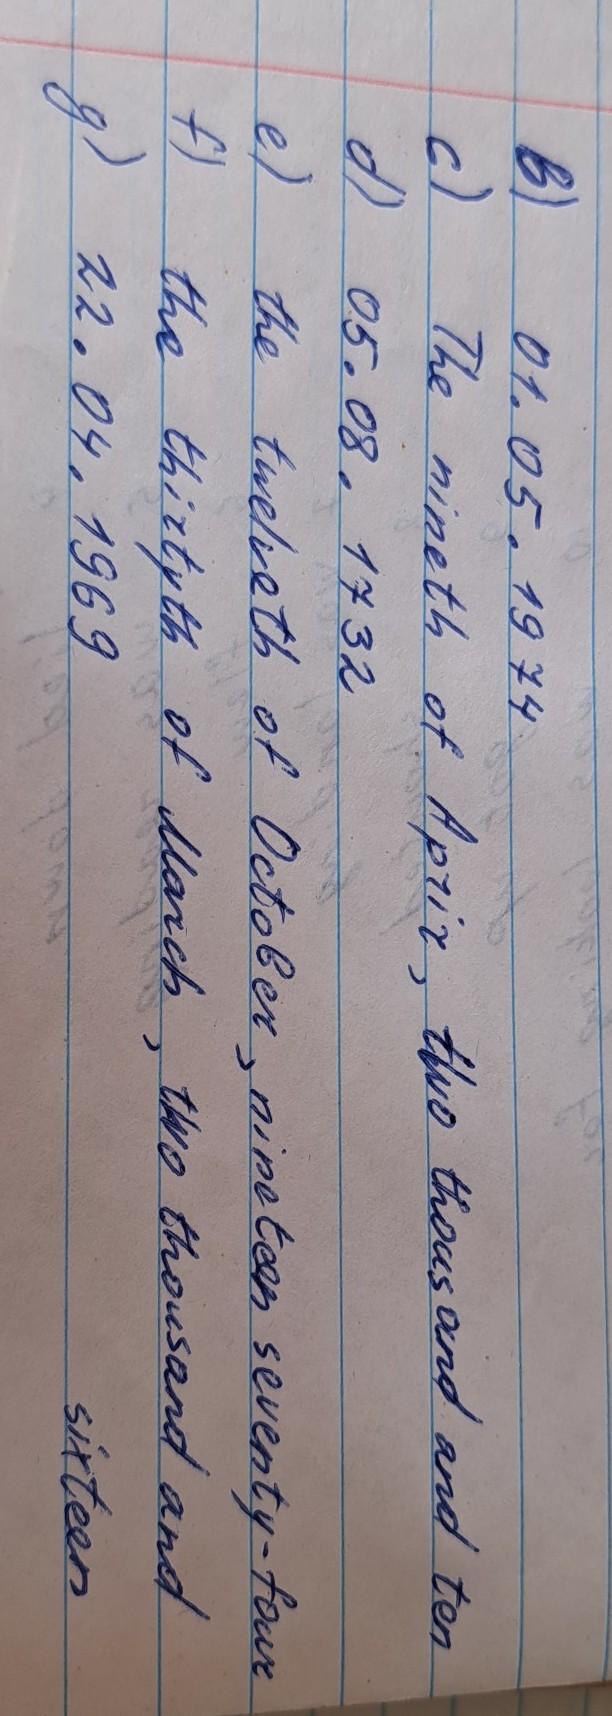 b) 01.05.1974
c) The nineth of Aprir, two thousand and ten
d) 05.08.1732
e) the twelveth of October, nineteen seventy-four
f) the thirtyth of March, two thousand and
sixteen
g) 22.04.1969